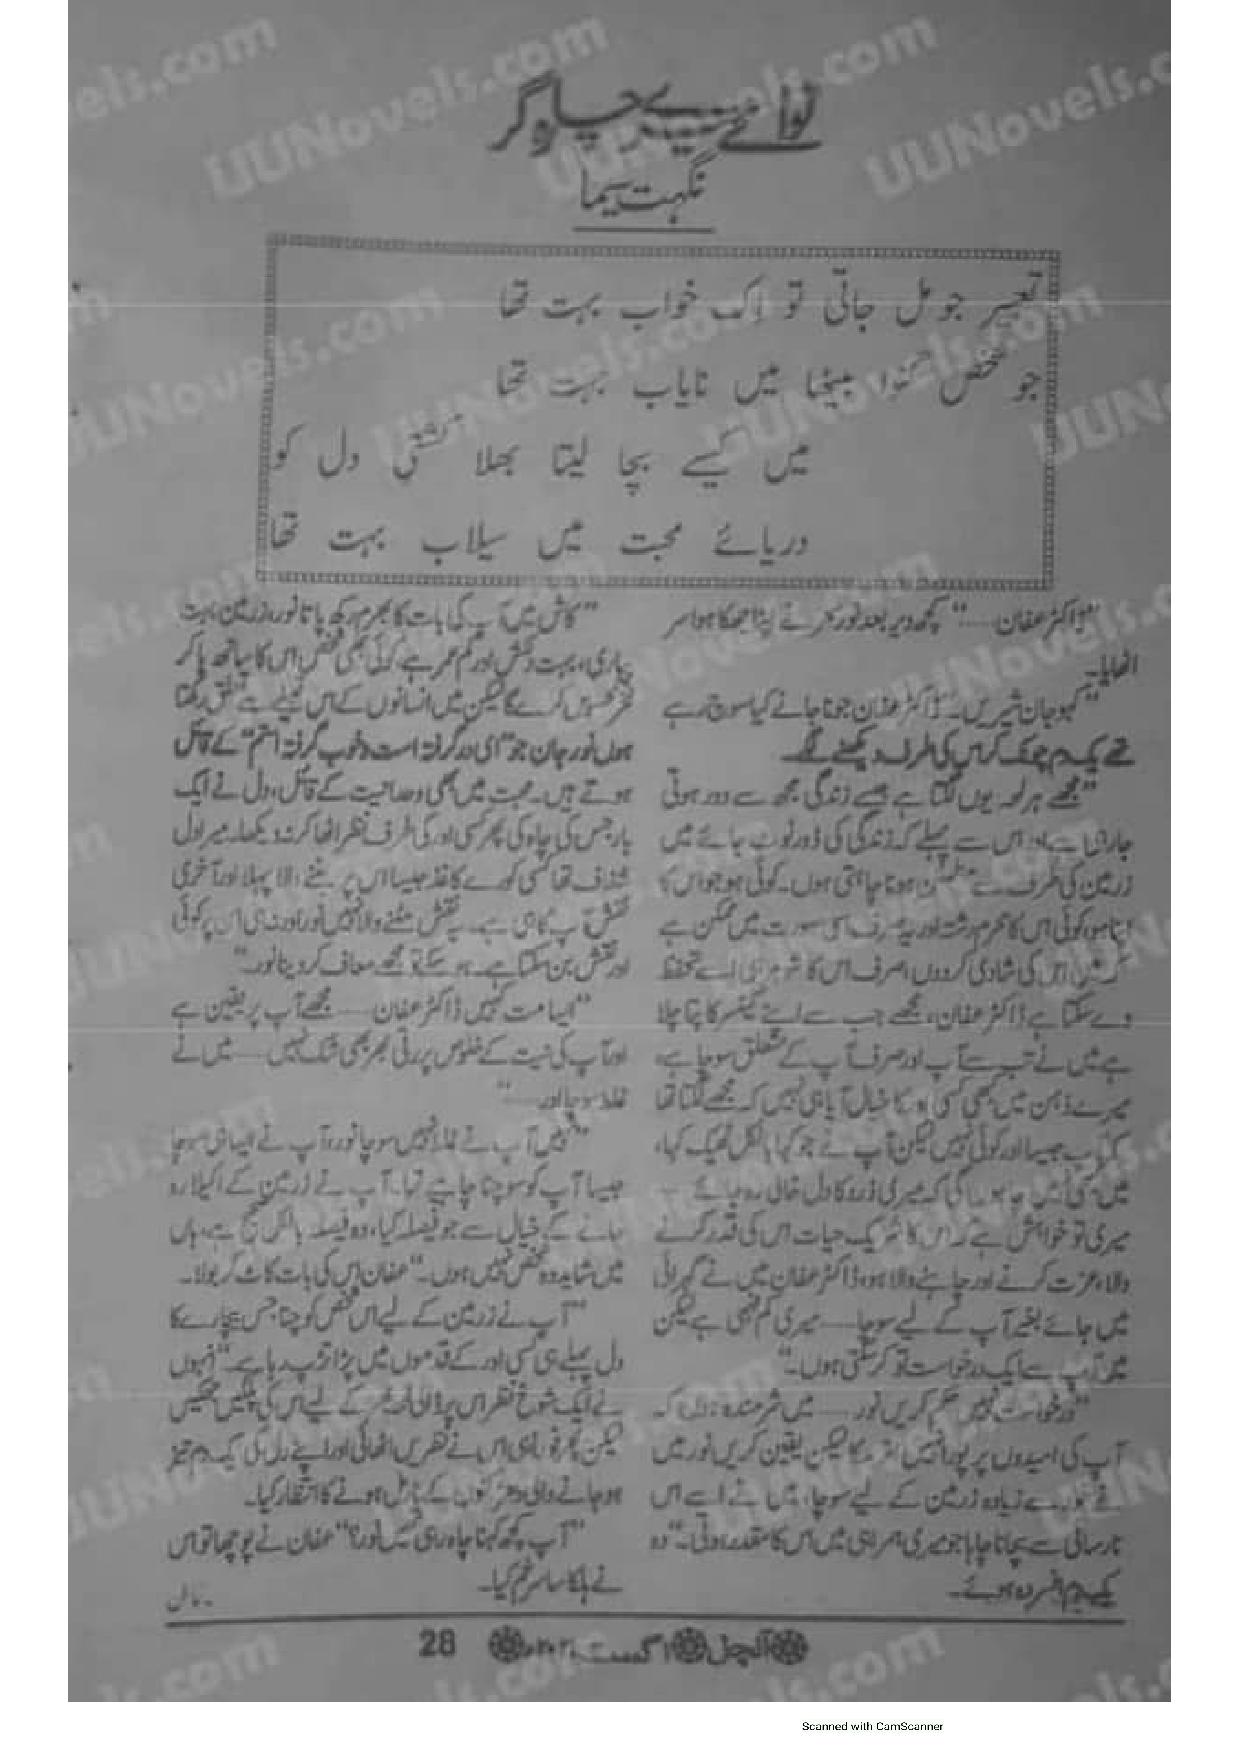 نوائے سینہ چاہ گر
نگہت سیما
تعبیر جو مل جاتی تو اک خواب بہت تھا
جو شخص گنوا بیٹھا میں نایاب بہت تھا
میں کیسے بچا لیتا بھلا کشتی دل کو
دریائے محبت میں سیلاب بہت تھا
”ڈاکٹر عفان......“ کچھ دیر بعد نور نے اپنا جھکا ہوا سر
اٹھایا۔
”کہو جان شیریں۔“ ڈاکٹر عفان جو نا جانے کیا سوچ رہے
تھے یک دم چونک کر اس کی طرف دیکھنے لگے۔
”مجھے ہر لمحہ یوں لگتا ہے جیسے زندگی مجھ سے دور ہوتی
جا رہی ہے اور اس سے پہلے کہ زندگی کی ڈور ٹوٹ جائے میں
زرمین کی طرف سے مطمئن ہونا چاہتی ہوں۔ کوئی ہو جو اس کا
اپنا ہو کوئی اس کا محرم رشتہ اور یہ صرف اسی صورت میں ممکن ہے
کہ میں اس کی شادی کر دوں صرف اس کا شوہر ہی اسے تحفظ
دے سکتا ہے ڈاکٹر عفان، مجھے جب سے اپنے کینسر کا پتا چلا
ہے میں نے تب سے آپ اور صرف آپ کے متعلق سوچا ہے،
میرے ذہن میں کبھی کسی اور کا خیال آیا ہی نہیں کہ مجھے لگتا تھا
کہ آپ جیسا اور کوئی نہیں لیکن آپ نے جو کہا بالکل ٹھیک کہا،
میں کبھی نہیں چاہوں گی کہ میری زرد کا دل خالی رہ جائے
میری تو خواہش ہے کہ اس کا شریک حیات اس کی قدر کرنے
والا، عزت کرنے اور چاہنے والا ہو، ڈاکٹر عفان میں نے گہرائی
میں جائے بغیر آپ کے لیے سوچا...... میری کم فہمی ہے لیکن
میں آپ سے ایک درخواست تو کر سکتی ہوں۔“
”درخواست نہیں حکم کریں نور...... میں شرمندہ ہوں کہ
آپ کی امیدوں پر پورا نہیں اترا لیکن یقین کریں نور میں
نے خود سے زیادہ زرمین کے لیے سوچا، میں نے اسے اس
نارسائی سے بچانا چاہا جو میری ہمراہی میں اس کا مقدر ہوتی۔“ وہ
یک دم افسردہ ہوئے۔
”کاش میں آپ کی بات کا بھرم رکھ پاتا نور، زرمین بہت
پیاری، بہت دلکش اور کم عمر ہے کوئی بھی شخص اس کا ساتھ پا کر
فخر محسوس کرے گا لیکن میں انسانوں کے اس قبیلے سے تعلق رکھتا
ہوں نور جان جو ”یک در گرفتہ است و خوب گرفتہ استم“ کے قائل
ہوتے ہیں۔ محبت میں بھی وحدانیت کے قائل، دل نے ایک
بار جس کی چاہ کی پھر کسی اور کی طرف نظر اٹھا کر نہ دیکھا۔ میرا دل
شفاف تھا کسی کورے کاغذ جیسا اس پر بننے والا پہلا اور آخری
نقش آپ کا ہی ہے۔ یہ نقش مٹنے والا نہیں نور اور نہ ہی اس پر کوئی
اور نقش بن سکتا ہے۔ ہو سکے تو مجھے معاف کر دینا نور۔“
”ایسا مت کہیں ڈاکٹر عفان...... مجھے آپ پر یقین ہے
اور آپ کی نیت کے خلوص پر رتی بھر بھی شک نہیں...... میں نے
غلط سوچا اور......“
”نہیں آپ نے غلط نہیں سوچا نور، آپ نے ایسا ہی سوچا
جیسا آپ کو سوچنا چاہیے تھا۔ آپ نے زرمین کے اکیلا رہ
جانے کے خیال سے جو فیصلہ کیا، وہ فیصلہ بالکل صحیح ہے، ہاں
میں شاید وہ شخص نہیں ہوں۔“ عفان اس کی بات کاٹ کر بولا۔
”آپ نے زرمین کے لیے اس شخص کو چنا جس بیچارے کا
دل پہلے ہی کسی اور کے قدموں میں پڑا تڑپ رہا ہے۔“ انہوں
نے ایک شوخ نظر اس پر ڈالی لمحہ بھر کے لیے اس کی پلکیں جھکیں
لیکن پھر فوراً ہی اس نے نظریں اٹھائی اور اپنے دل کی یک دم تیز
ہو جانے والی دھڑکنوں کے نارمل ہونے کا انتظار کیا۔
”آپ کچھ کہنا چاہ رہی تھیں نور؟“ عفان نے پوچھا تو اس
نے ہلکا سا سر خم کیا۔
آنچل اگست ۲۰۲۰ء 28
Scanned with CamScanner
UUNovels.com